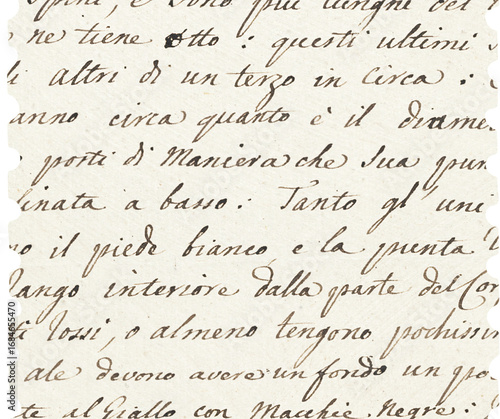 , e sono più lunghe del
ne tiene otto : questi ultimi
altri di un terzo in circa :
anno circa quanto è il diame
porti di Maniera che sua pun
linata a basso : Tanto gl' uni
il piede bianco, e la punta
lango interiore dalla parte del Cor
ti Rossi, o almeno tengono pochissim
ale devono avere un fondo un po
te al Giallo con Macchie Negre :
Adobe Stock | #1684655470